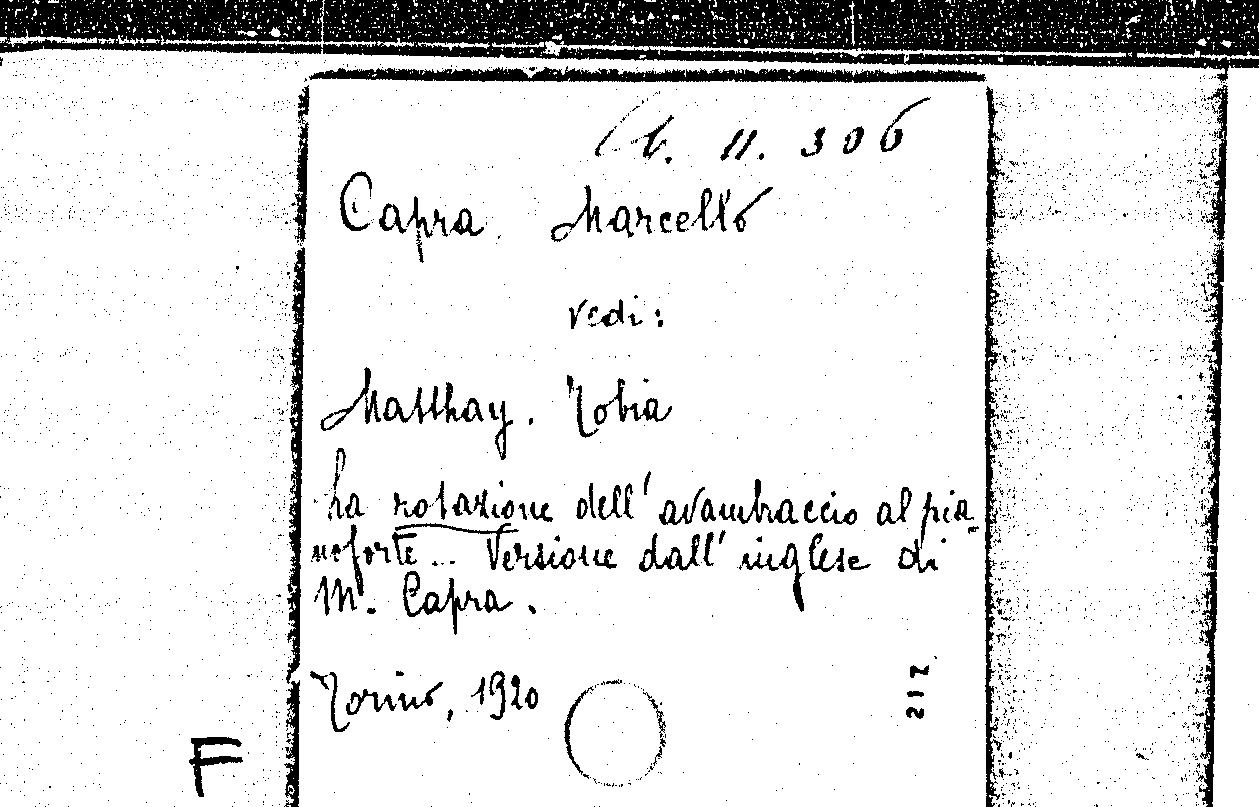 b. 11. 306
Capra. Marcello
vedi:
Matthay. Tobia
La rotazione dell'avambraccio al pia-
noforte... Versione dall'inglese di
M. Capra.
Torino, 1920
212
F